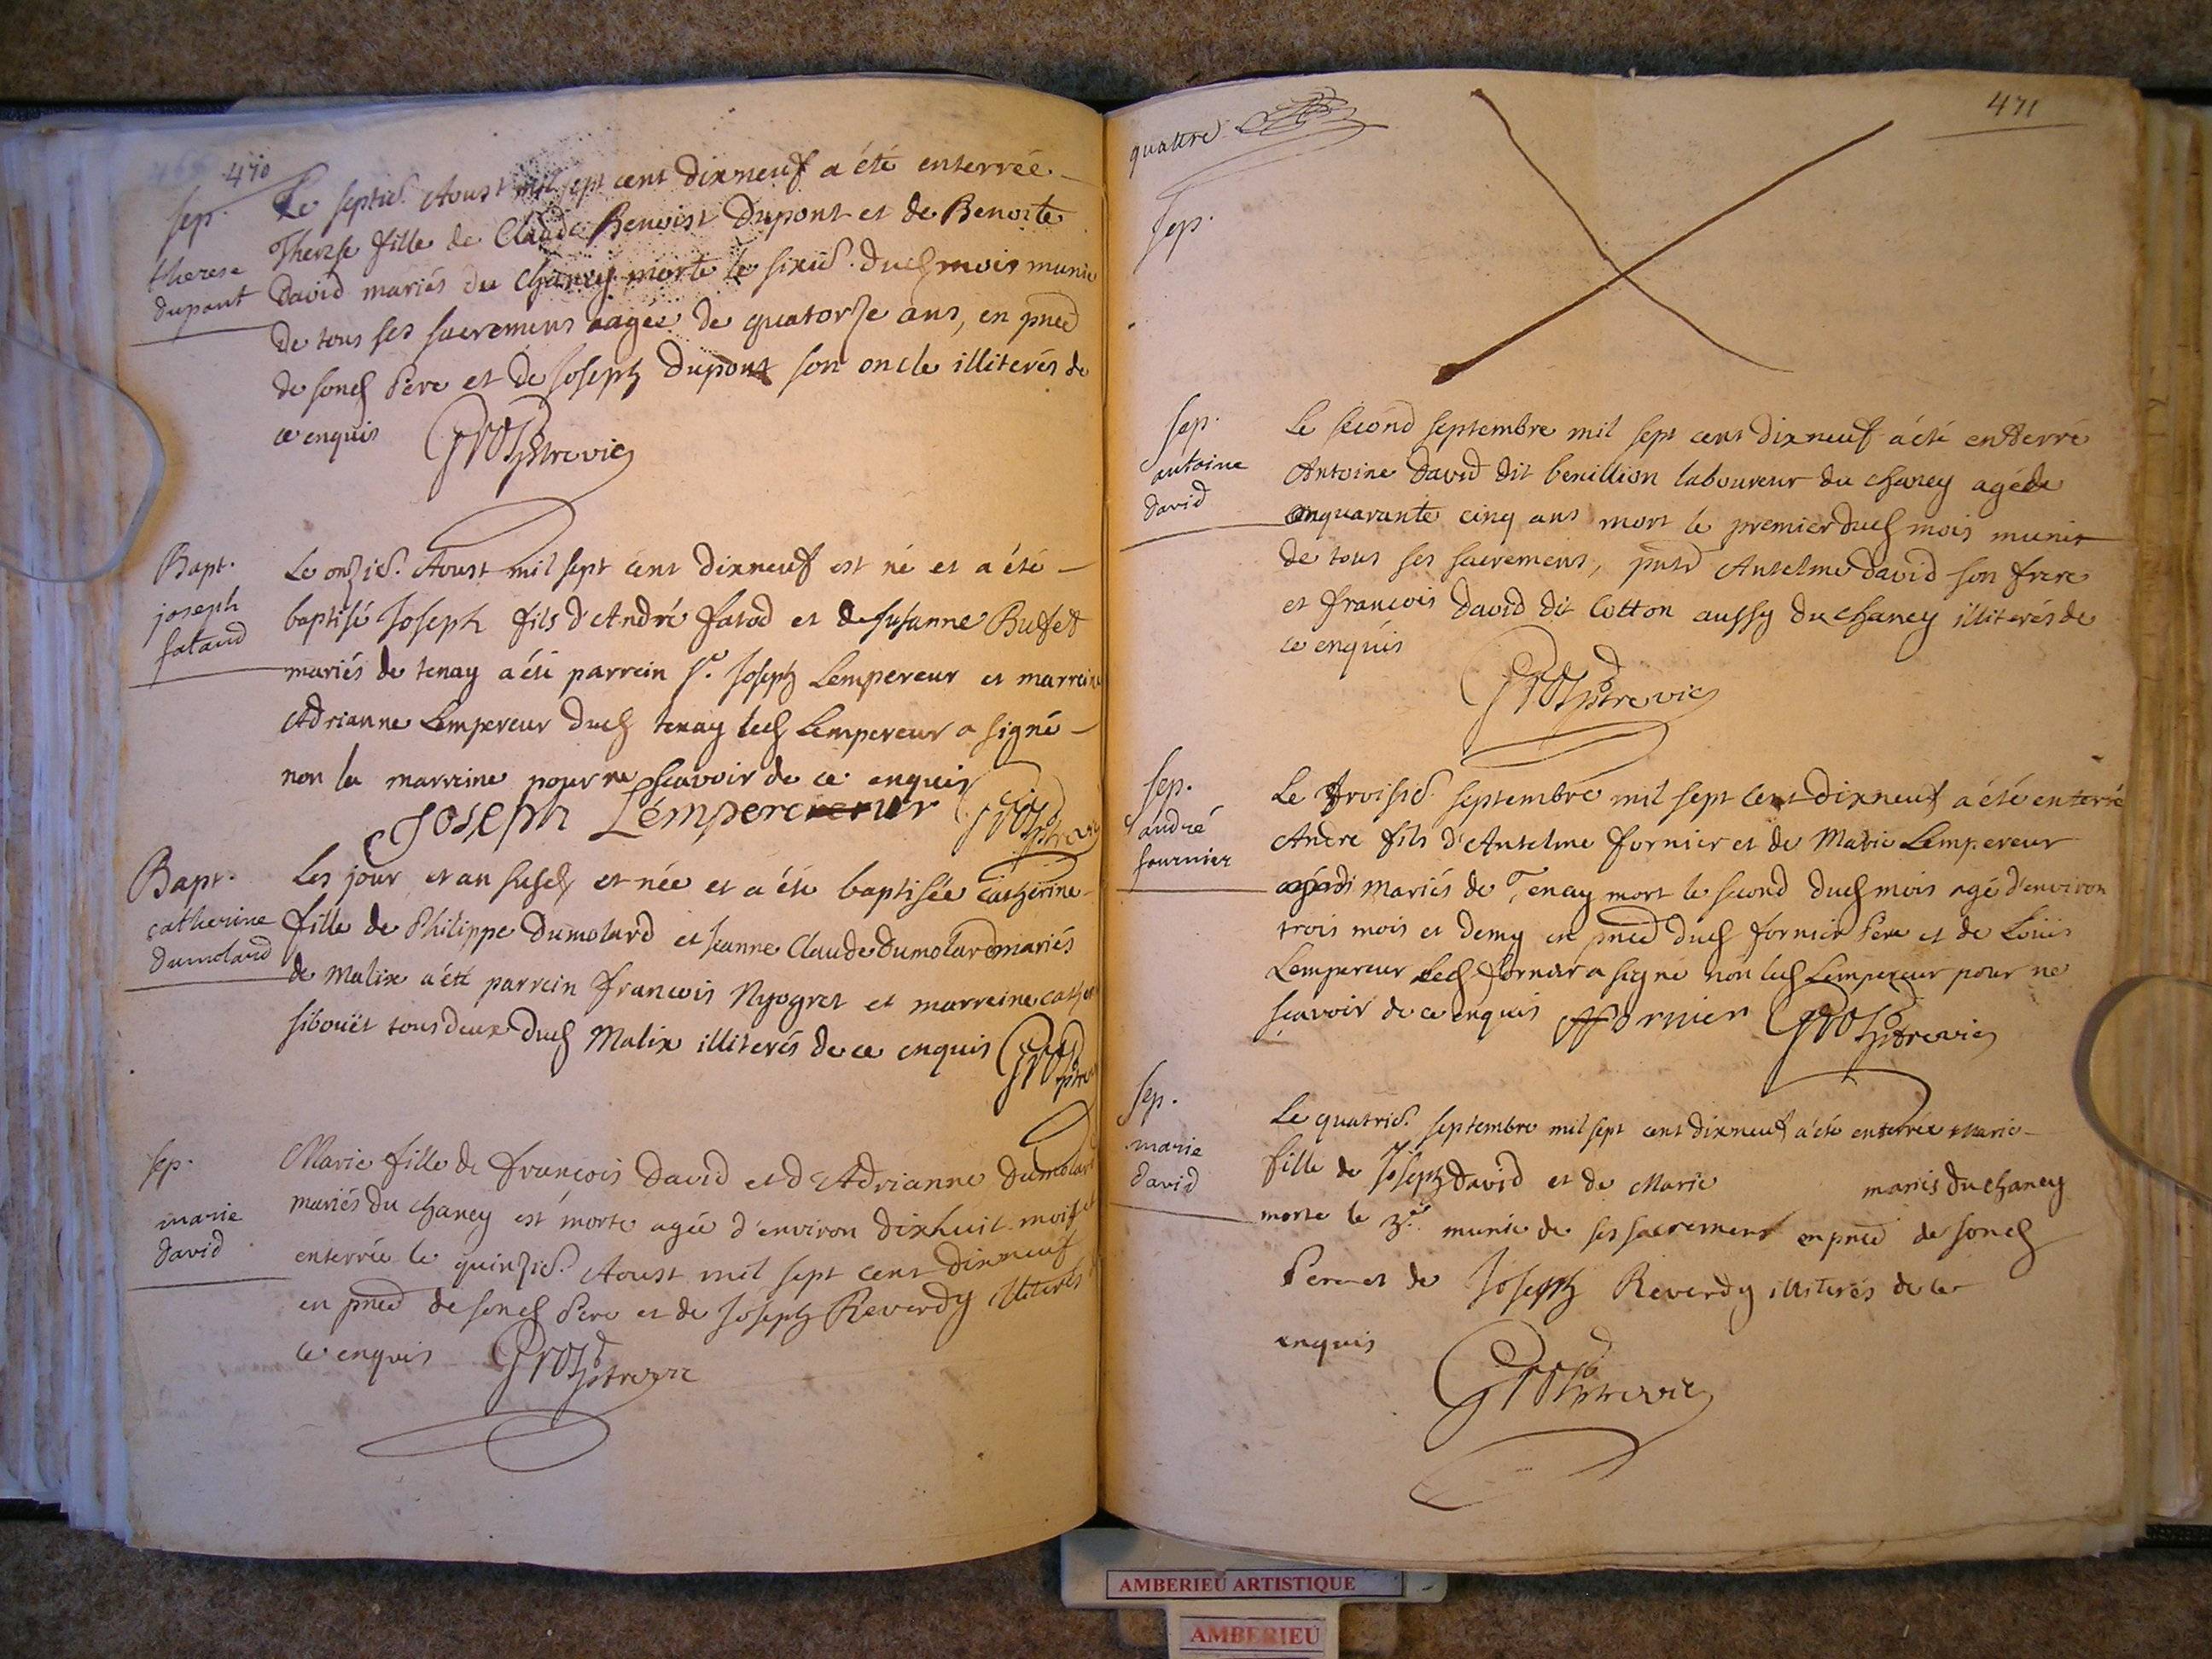 470
Sep.
therese
dupont
Le septie. Aoust mil sept cent dixneuf a été enterrée
Therese fille de Claude Benoist Dupont et de Benoite
David mariés du Chaney morte le sixie. dud mois munie
de tous ses sacremens aagée de quatorze ans, en pnce
de sond Pere et de Joseph Dupont son oncle illiterés de
ce enquis Gros ptre vic
Bapt.
joseph
fataud
Le onzie. Aoust mil sept cent dixneuf est né et a été
baptisé Joseph fils d'André fatod et de Susanne Buffet
mariés de tenay a été parrein Sr. Joseph Lempereur et marreine
Adrianne Lempereur dud tenay led Lempereur a signé
non la marreine pour ne scavoir de ce enquis
Joseph Lempereur Gros ptre vic
Bapt.
catherine
dumolard
Les jour et an susd et née et a été baptisée Catherine
fille de Philippe Dumolard et Jeanne Claude Dumolard mariés
de Malix a été parrein francois Nyogret et marreine Cath
Sibouët tous deux dud Malix illiterés de ce enquis Gros ptre
Sep.
marie
david
Marie fille de françois David et d'Adrianne Dumolard
mariés du Chaney est morte agée d'environ dixhuit mois et
enterrée le quinzie. Aoust mil sept cent dixneuf
en pnce de sond Pere et de Joseph Reverdy illiterés
ce enquis Gros ptre vic
471
quattre
Sep.
Sep.
antoine
david
Le second septembre mil sept cent dixneuf a été enterré
Antoine David dit benillion laboureur du Chaney agé de
quarante cinq ans mort le premier dud mois munit
de tous ses sacremens, pnts Antelme David son frere
et francois David dit Cotton aussy du Chaney illiterés de
ce enquis Gros ptre vic
Sep.
andré
fournier
Le troisie. septembre mil sept cent dixneuf a été enterré
Andre fils d'Antelme fornier et de Marie Lempereur
mariés de Tenay mort le second dud mois agé d'environ
trois mois et demy en pnce dud fornier Pere et de Loüis
Lempereur Led fornier a signé non led Lempereur pour ne
sçavoir de ce enquis ffornier Gros ptre vic
Sep.
marie
david
Le quatrie. septembre mil sept cent dixneuf a été enterrée Marie
fille de Joseph David et de Marie mariés du Chaney
morte le 3e. munie de ses sacremens en pnce de sond
Pere et de Joseph Reverdy illiterés de ce
enquis Gros ptre vic
AMBERIEU ARTISTIQUE
AMBERIEU